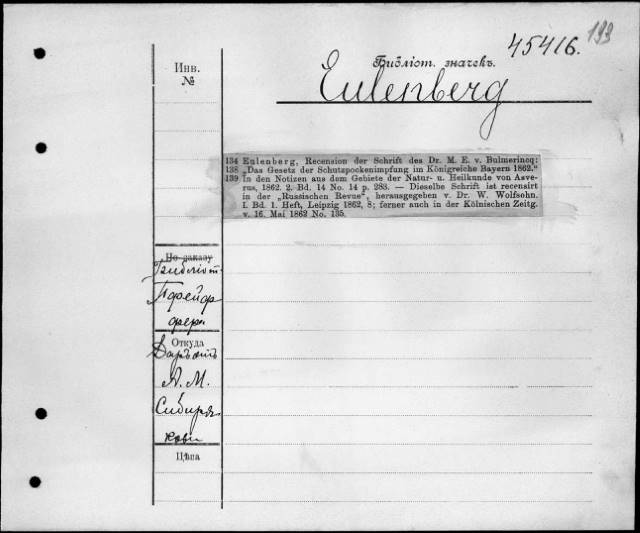 45416.
193
Инв.
№
Библіот. значекъ.
Eulenberg
134 Eulenberg, Recension der Schrift des Dr. M. E. v. Bulmerincq:
138 „Das Gesetz der Schutzpockenimpfung im Königreiche Bayern 1862.“
139 In den Notizen aus dem Gebiete der Natur- u. Heilkunde von Asve-
rus, 1862. 2. Bd. 14 No. 14 p. 283. — Dieselbe Schrift ist recensirt
in der „Russischen Revue“, herausgegeben v. Dr. W. Wolfsohn.
I. Bd. 1. Heft, Leipzig 1862, 8; ferner auch in der Kölnischen Zeitg.
v. 16. Mai 1862 No. 135.
По заказу
Библіот.
Пфейф
фера
Откуда
Даръ отъ
А. М.
Сибиря
кова
Цѣна